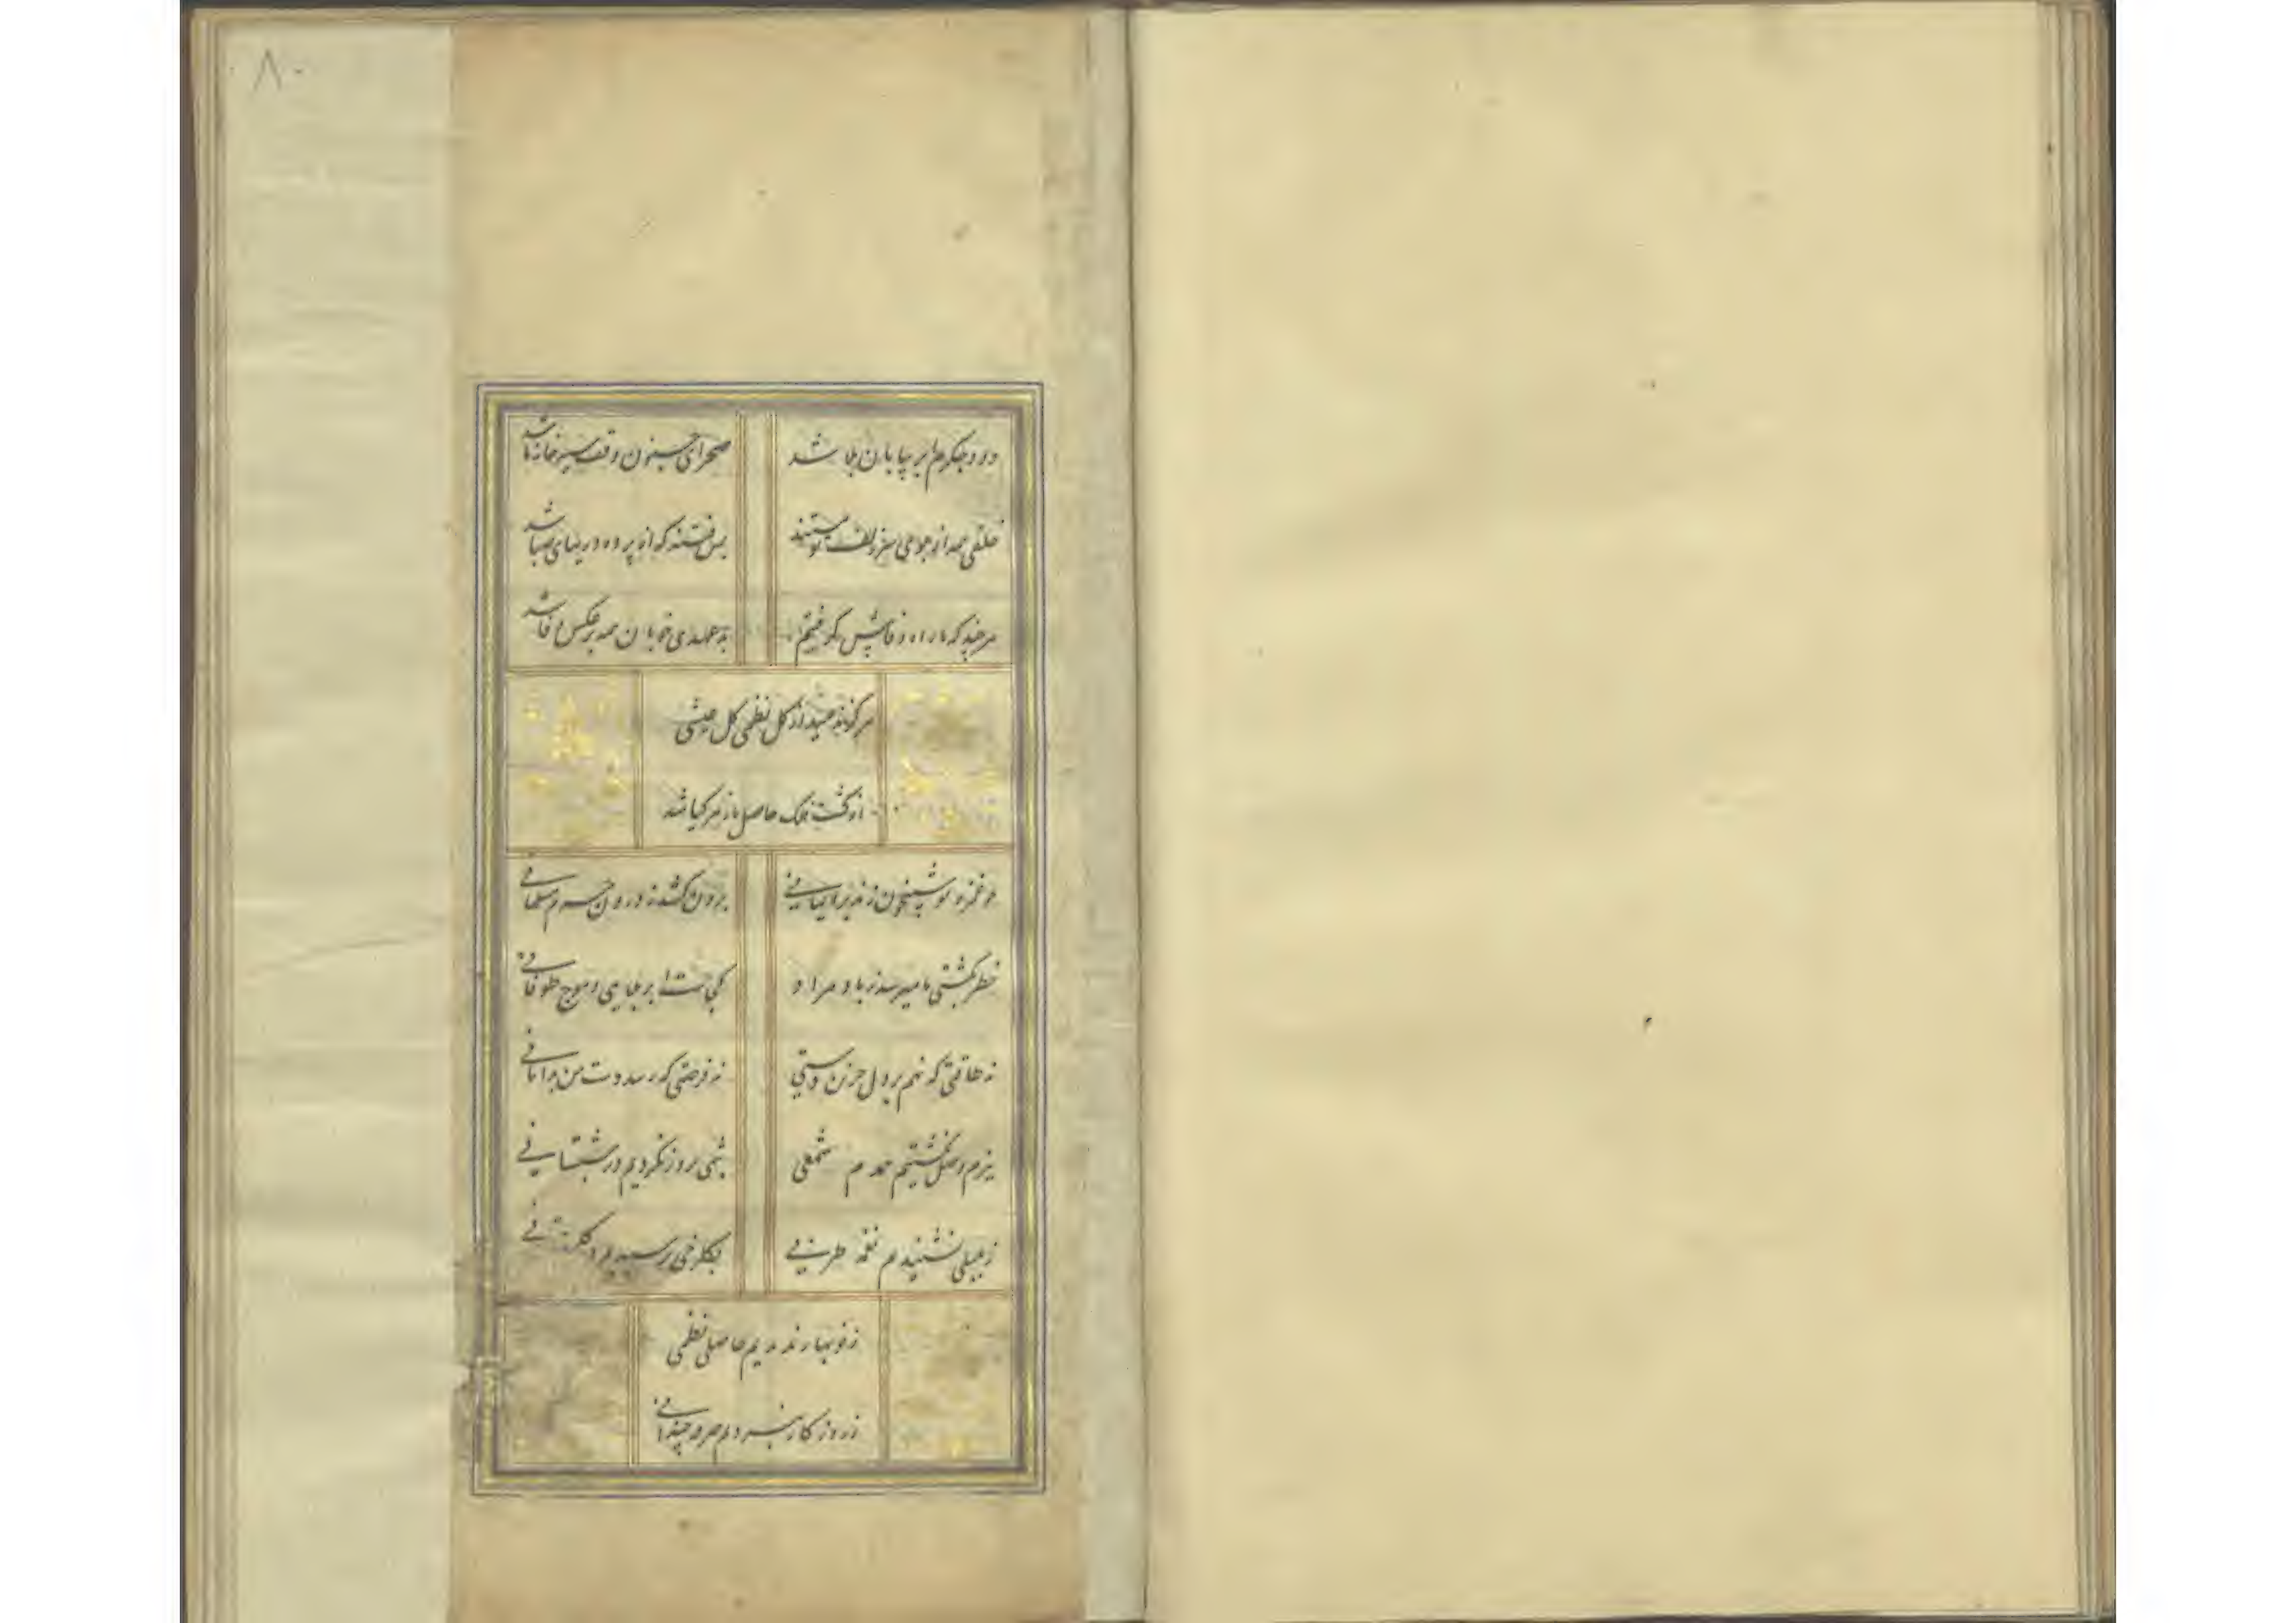 ۸۰
دود جگرم ابر بیابان بلا شد
صحرای جنون وقف سیه خانهٔ ما شد
خلقی همه از بوی سر زلف تو مستند
بس فتنه که از پرده دریهای صبا شد
هر چند که ما راه وفا پیش گرفتیم
بد عهدی خوبان همه بر عکس وفا شد
هر کز نچشید از گل نظمی گل عیشی
از کشت فلک حاصل ما زهر گیا شد
چو غمزه تو شبیخون زند بر ایمانی
برون کشد ز درون حرم مسلمانی
خطر بکشتی ما میرسد ز باد مراد
کجاست ابر بلایی و موج طوفانی
نه طاقتی که نهم بر دل حزین دستی
نه فرصتی که رسد دست من بدامانی
ببزم وصل نگشتیم همدم شمعی
شبی بروز نکردیم در شبستانی
ز بلبلی نشنیدم نغمه طربی
بگلرخی نرسیدیم در گلستانی
ز نوبهار ندیدیم حاصلی نظمی
ز روزگار نبردیم صرفه چندانی